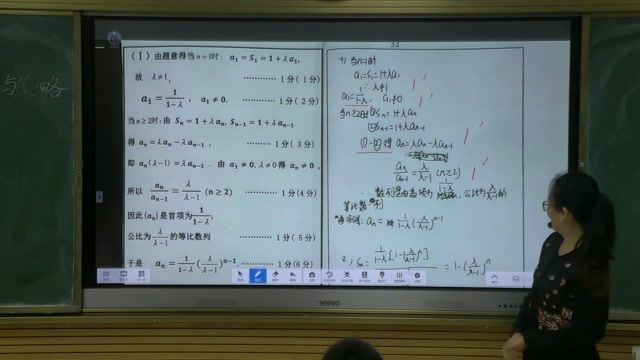 与策略
(Ⅰ) 由题意得当 n=1时: a₁=S₁=1+λa₁,
故 λ≠1, ………… 1分 ( 1分)
a₁=1/(1-λ), a₁≠0. ………… 1分 ( 2分)
当 n≥2时: 由 Sₙ=1+λaₙ, Sₙ₋₁=1+λaₙ₋₁
得 aₙ=λaₙ-λaₙ₋₁. ………… 1分 ( 3分)
即 aₙ(λ-1)=λaₙ₋₁. 由 a₁≠0, λ≠0 得 aₙ≠0,
所以 aₙ/aₙ₋₁=λ/(λ-1) (n≥2) ………… 1分(4分)
因此{aₙ}是首项为 1/(1-λ),
公比为 λ/(λ-1) 的等比数列 ………… 1分( 5分)
于是 aₙ=1/(1-λ)(λ/(λ-1))ⁿ⁻¹. ………… 1分(6分)
32
当n=1时
a₁=S₁=1+λa₁
∴λ≠1
a₁=1/(1-λ), a₁≠0
当n≥2时 ①Sₙ=1+λaₙ
②Sₙ₋₁=1+λaₙ₋₁
①-②得 aₙ=λaₙ-λaₙ₋₁
aₙ/aₙ₋₁=λ/(λ-1) (n≥2)
∴数列是由首项为1/(1-λ), 公比为λ/(λ-1)的
等比数列
aₙ=1/(1-λ)(λ/(λ-1))ⁿ⁻¹
2) Sₙ=1/(1-λ)[1-(λ/(λ-1))ⁿ] =1-(λ/(λ-1))ⁿ
seewo